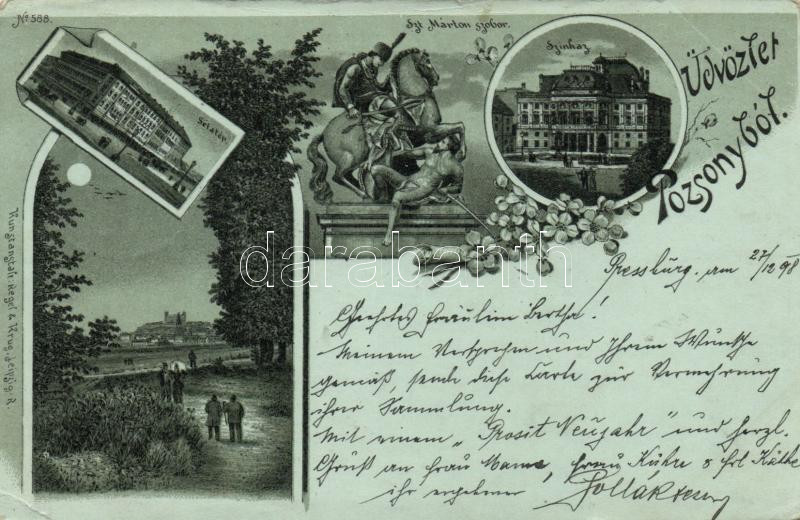 No 588.
Szt Márton szobor.
Szinház
Sétatér
Üdvözlet
Pozsonyból.
Kunstanstalt: Regel & Krug, Leipzig. R.
darabanth
Pressburg, am 27/12 98
Geehrtes Fräulein Bertha!
Meinem Versprechen und Ihrem Wunsche
gemäß, sende diese Carte zur Vermehrung
ihrer Sammlung.
Mit einem „Prosit Neujahr" und herzl.
Gruß an Frau Mama, Frau Kühre & Frl Käthe
ihr ergebener